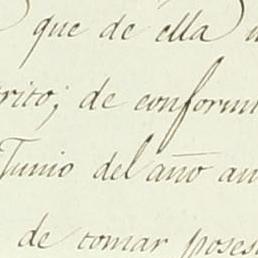 que de ella
rito; de conformi
Junio del año an
de tomar poses